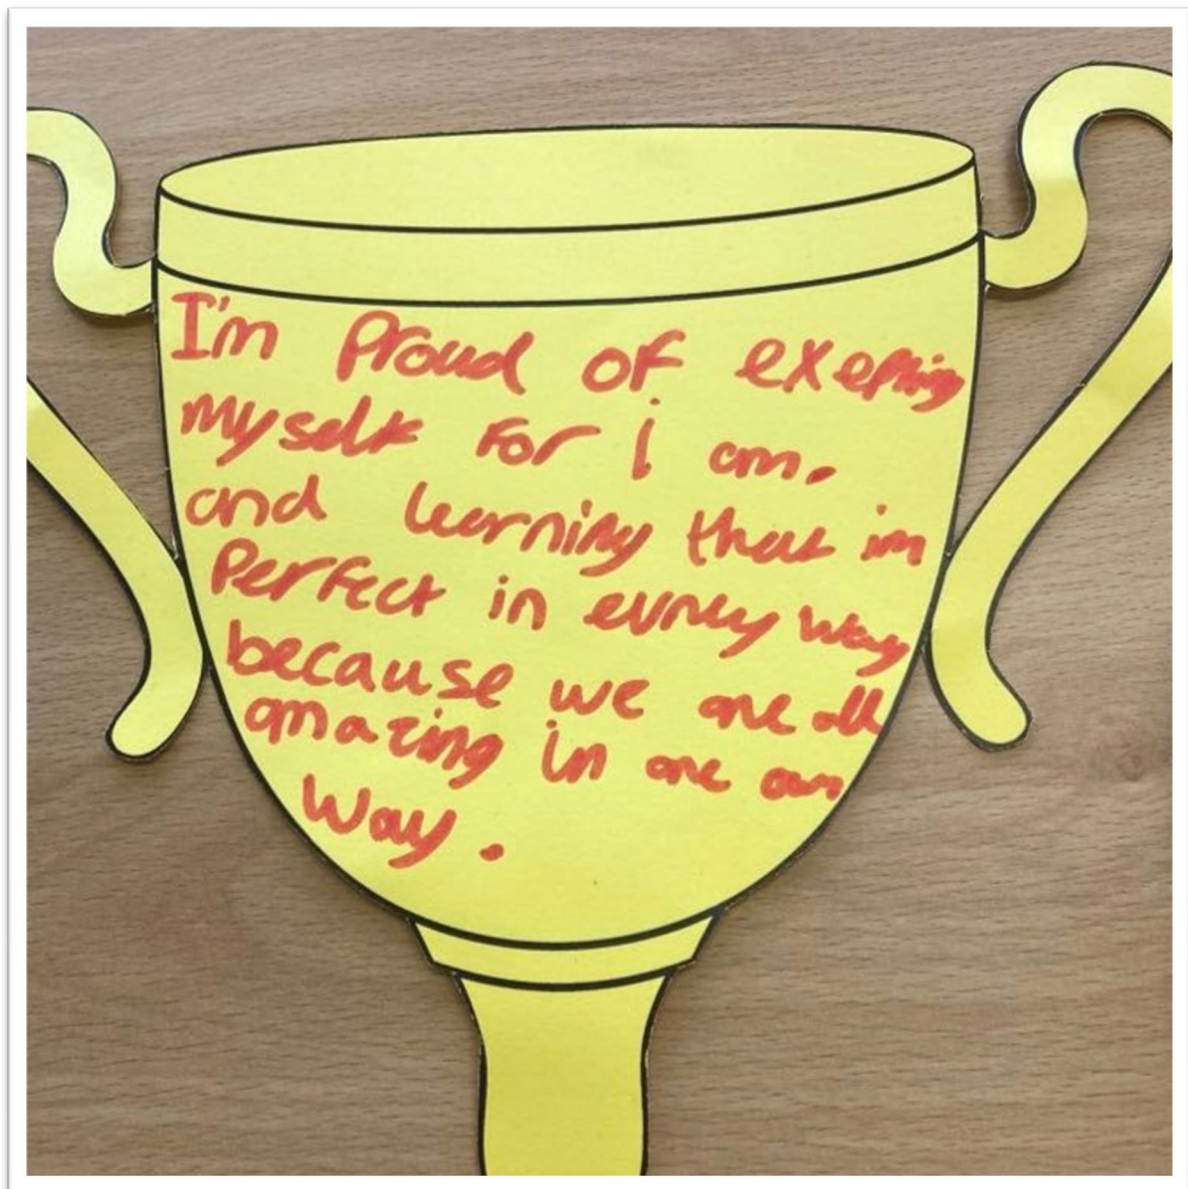 I'm Proud of exepting
myself for i am.
and learning that im
Perfect in evrey way
because we are all
amazing in are own
way.